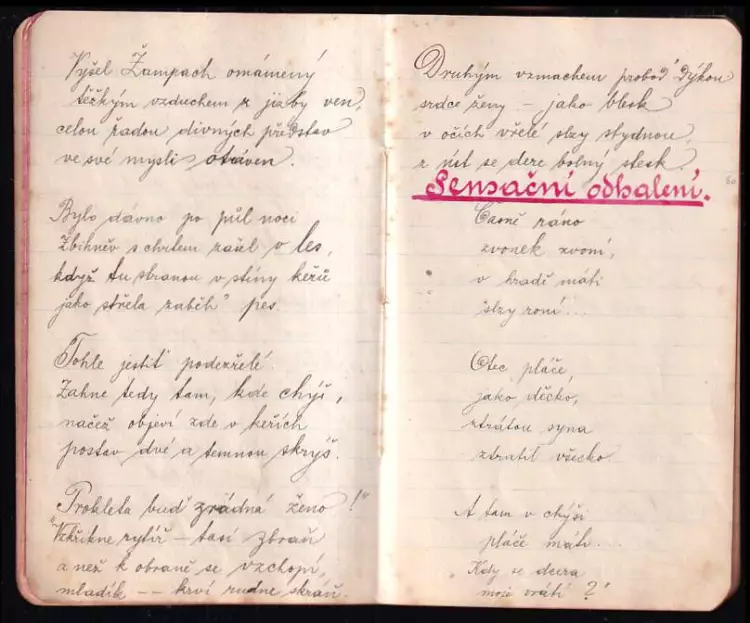 Vyšel Žampach omámený
těžkým vzduchem z jizby ven,
celou řadou divných představ
ve své mysli otáven.
Bylo dávno po půl noci
Zbihněv s chrtem zašel v les,
když tu stranou v stíny keřů
jako střela zaběh' pes.
Tohle jestiť podezřelé.
Zahne tedy tam, kde chýš,
načež objeví zde v keřích
postav dvé a temnou skrýš.
"Prokleta buď zrádná ženo!"
Vzkřikne rytíř – tasí zbraň
a než k obraně se vzchopí,
mladík -- krví rudne skráň.
Druhým vzmachem probod' dýkou
srdce ženy – jako blesk
v očích vřelé slzy stydnou,
z úst se dere bolný stesk.
Sensační odhalení.
Časně ráno
zvonek zvoní,
v hradě máti
slzy roní...
Otec pláče,
jako děcko,
ztrátou syna
ztratil všecko.
A tam v chýši
pláče máti....
Kdy se dcera
moje vrátí?!